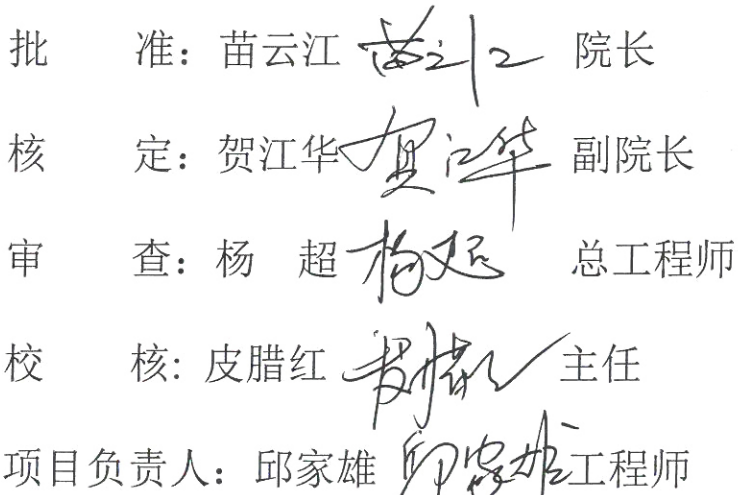 批　　准：苗云江 苗云江 院长
核　　定：贺江华 贺江华 副院长
审　　查：杨　超 杨超 总工程师
校　　核：皮腊红 皮腊红 主任
项目负责人：邱家雄 邱家雄 工程师